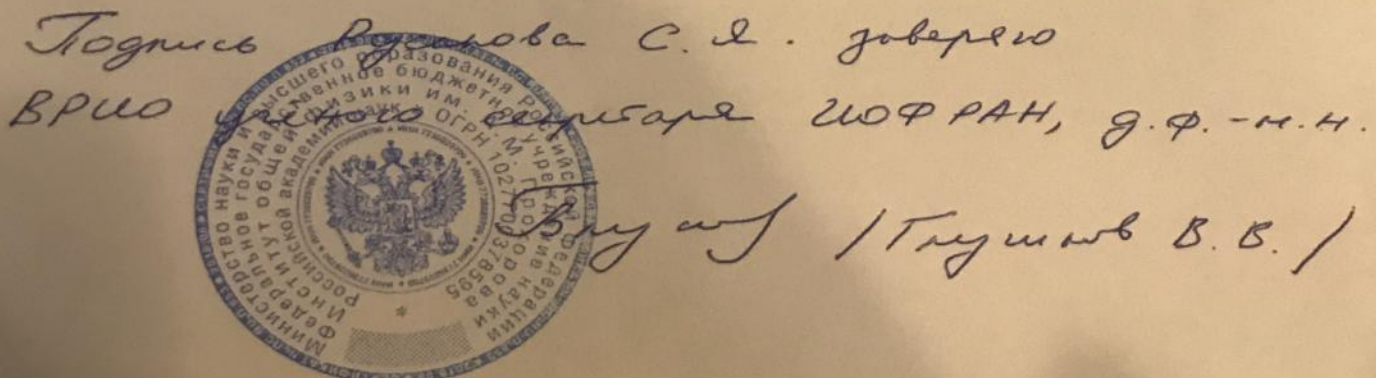 Подпись Русакова С.Я. заверяю
ВРИО учёного секретаря ИОФ РАН, д.ф.-м.н.
/Глушков В.В./
Министерство науки и высшего образования Российской Федерации
Федеральное государственное бюджетное учреждение науки
Институт общей физики им. А.М. Прохорова
Российской академии наук * ОГРН 1027700378595
*